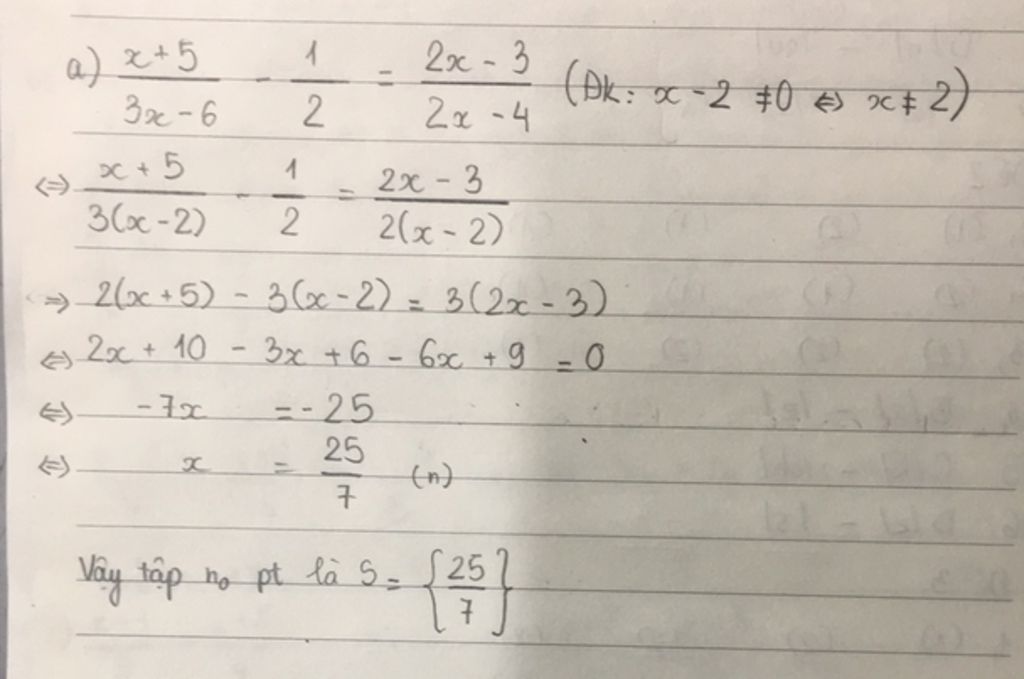 a) (x+5)/(3x-6) - 1/2 = (2x-3)/(2x-4) (Đk: x-2 ≠0 ⇔ x≠2)
⇔ (x+5)/(3(x-2)) - 1/2 = (2x-3)/(2(x-2))
⇒ 2(x+5) - 3(x-2) = 3(2x-3)
⇔ 2x + 10 - 3x + 6 - 6x + 9 = 0
⇔ -7x = -25
⇔ x = 25/7 (n)
Vậy tập no pt là S = {25/7}